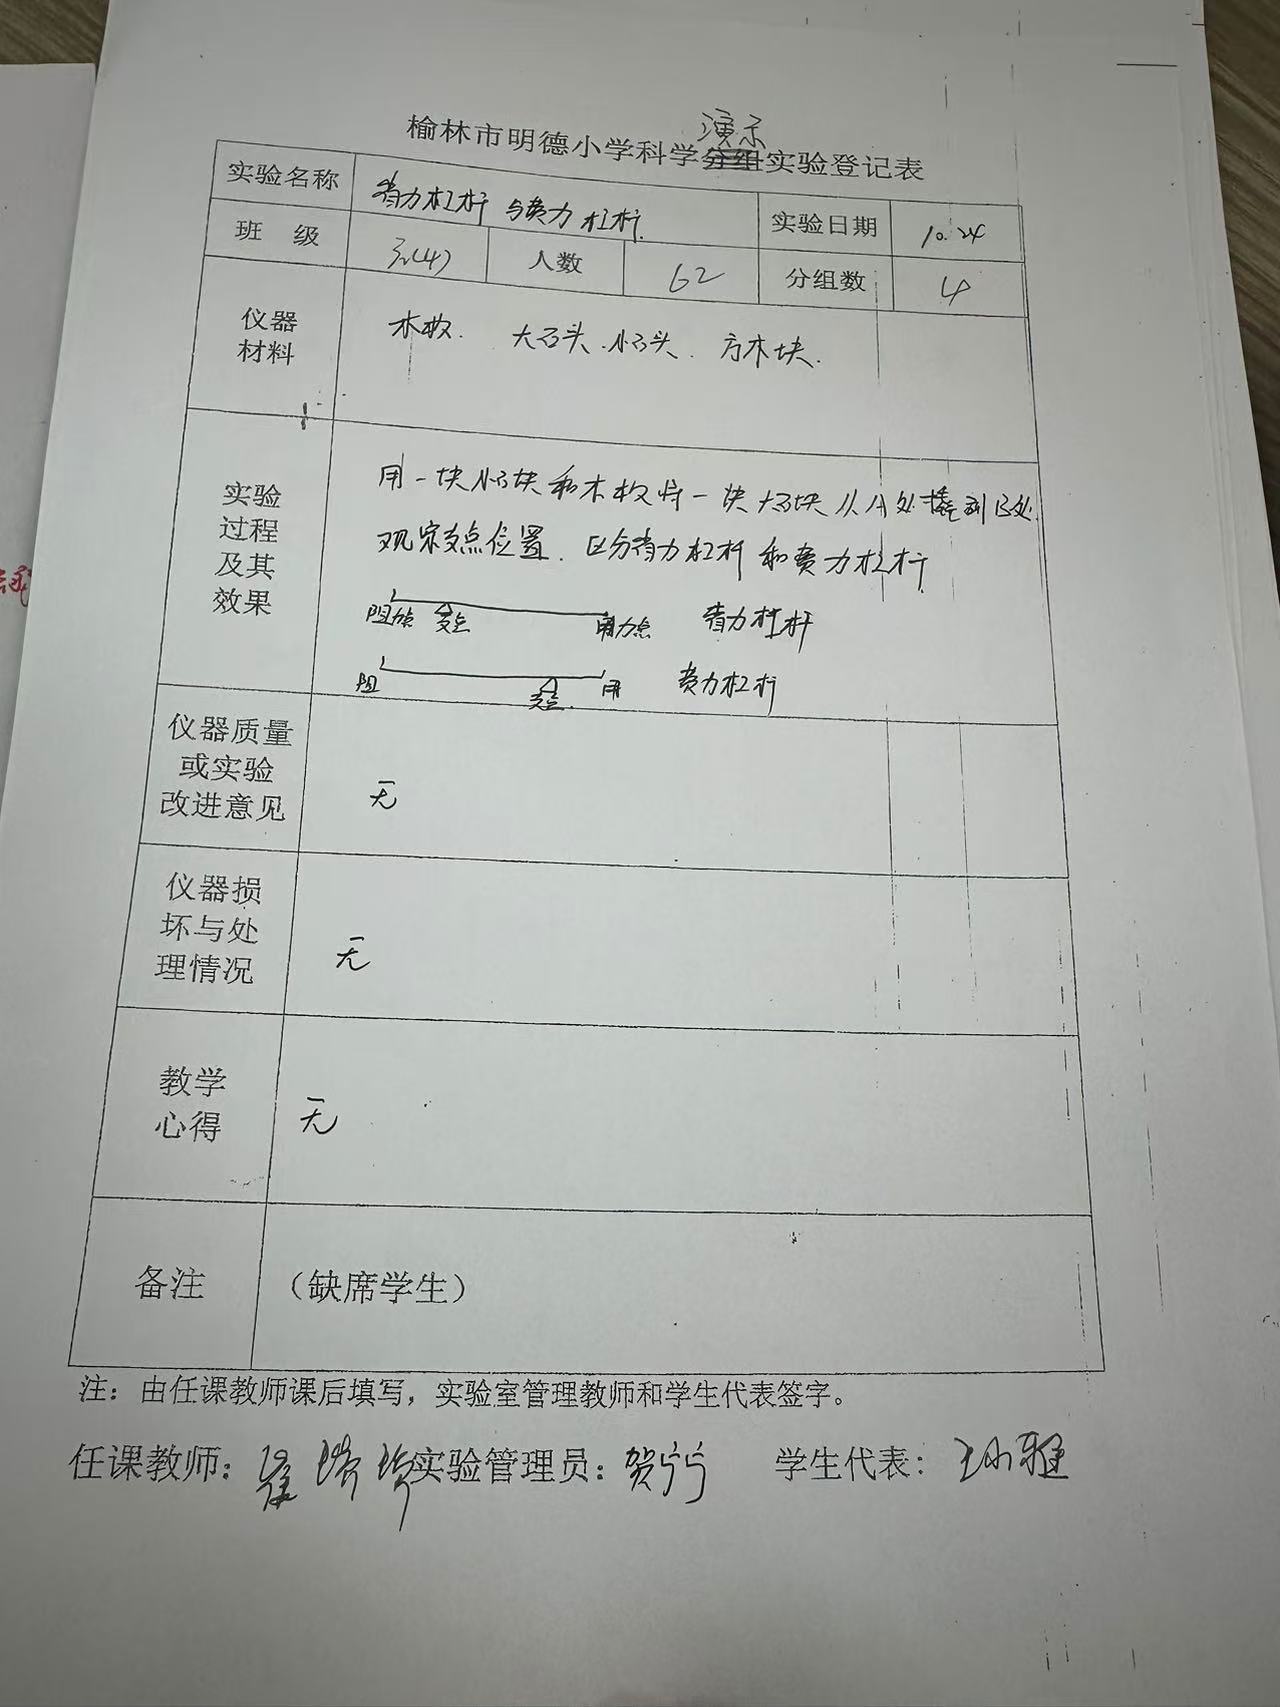 演示
榆林市明德小学科学分组实验登记表
实验名称 省力杠杆与费力杠杆. 实验日期 10.24
班 级 三(4) 人数 62 分组数 4
仪器
材料
木板. 大石头.小石头. 方木块.
实验
过程
及其
效果
用一块小石块和木板将一块大石块从A处撬到B处.
观察支点位置.区分省力杠杆和费力杠杆
阻力点 支点 用力点 省力杠杆
阻 支点. 用 费力杠杆
仪器质量
或实验
改进意见
无
仪器损
坏与处
理情况
无
教学
心得
无
备注 (缺席学生)
注：由任课教师课后填写，实验室管理教师和学生代表签字。
任课教师： 实验管理员：贺宁宁 学生代表：